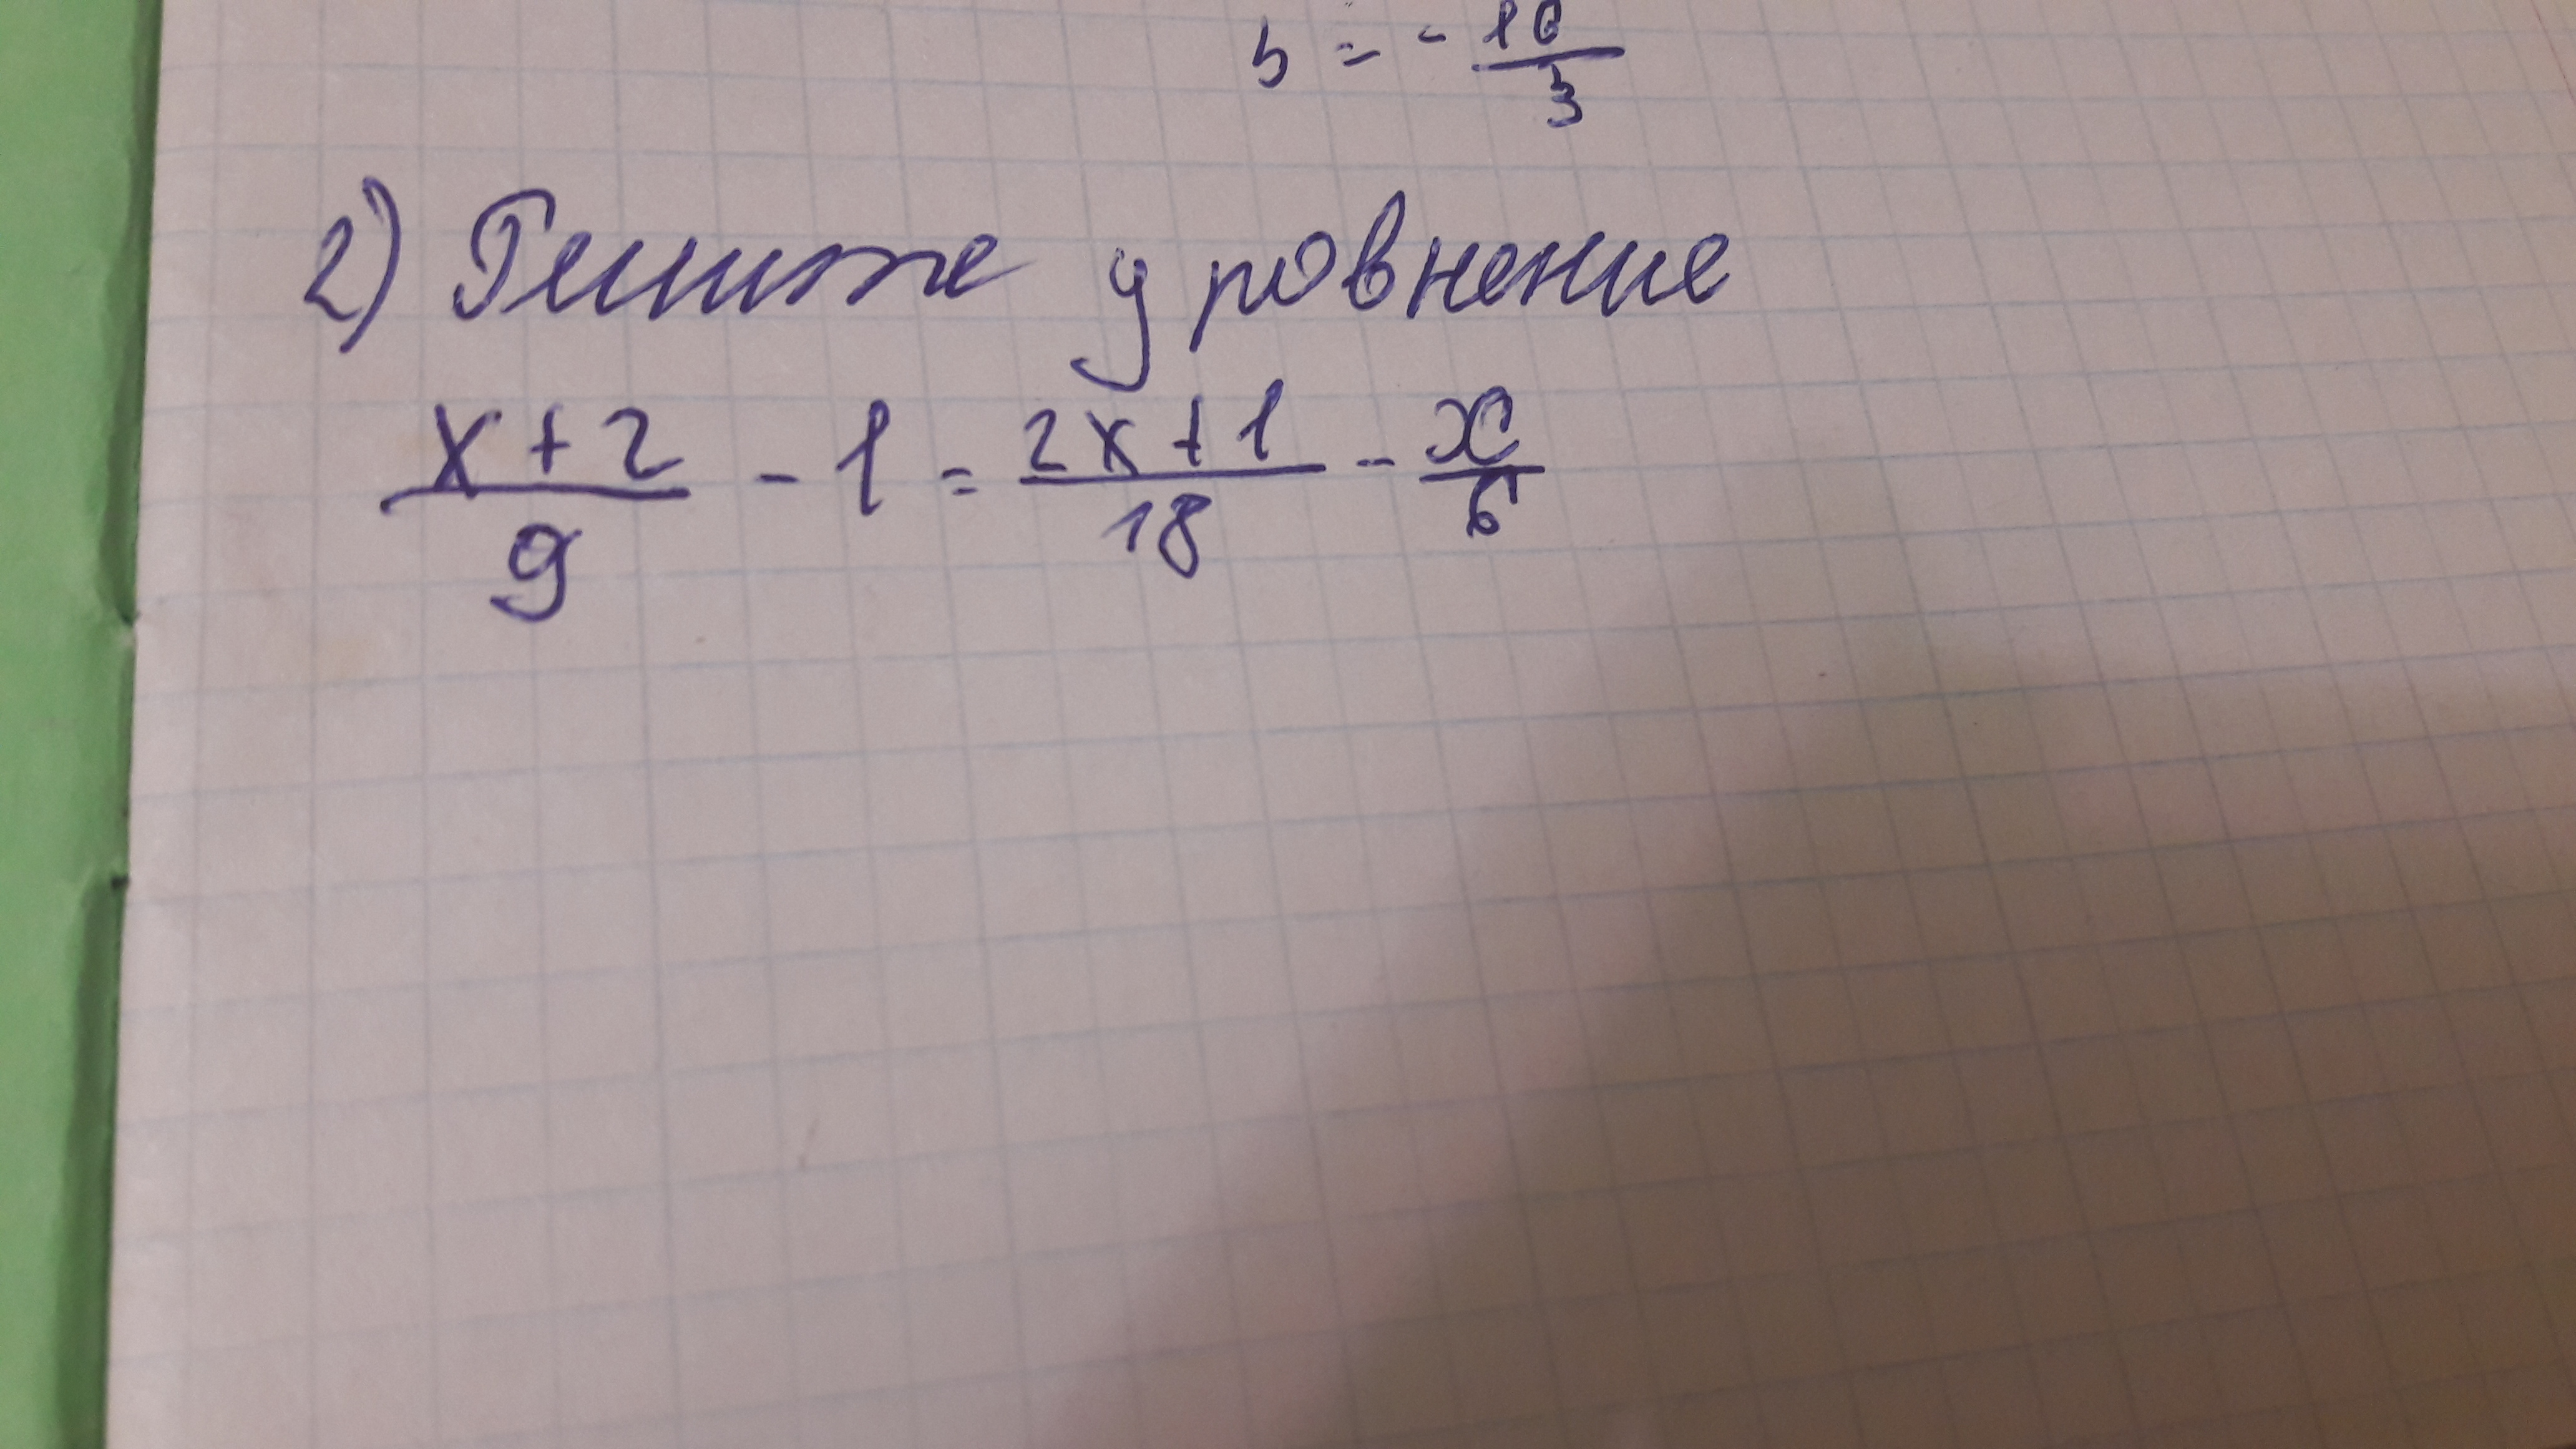 5 = - 10/3
2) Решите уровнение
(x + 2)/9 - 1 = (2x + 1)/18 - x/6